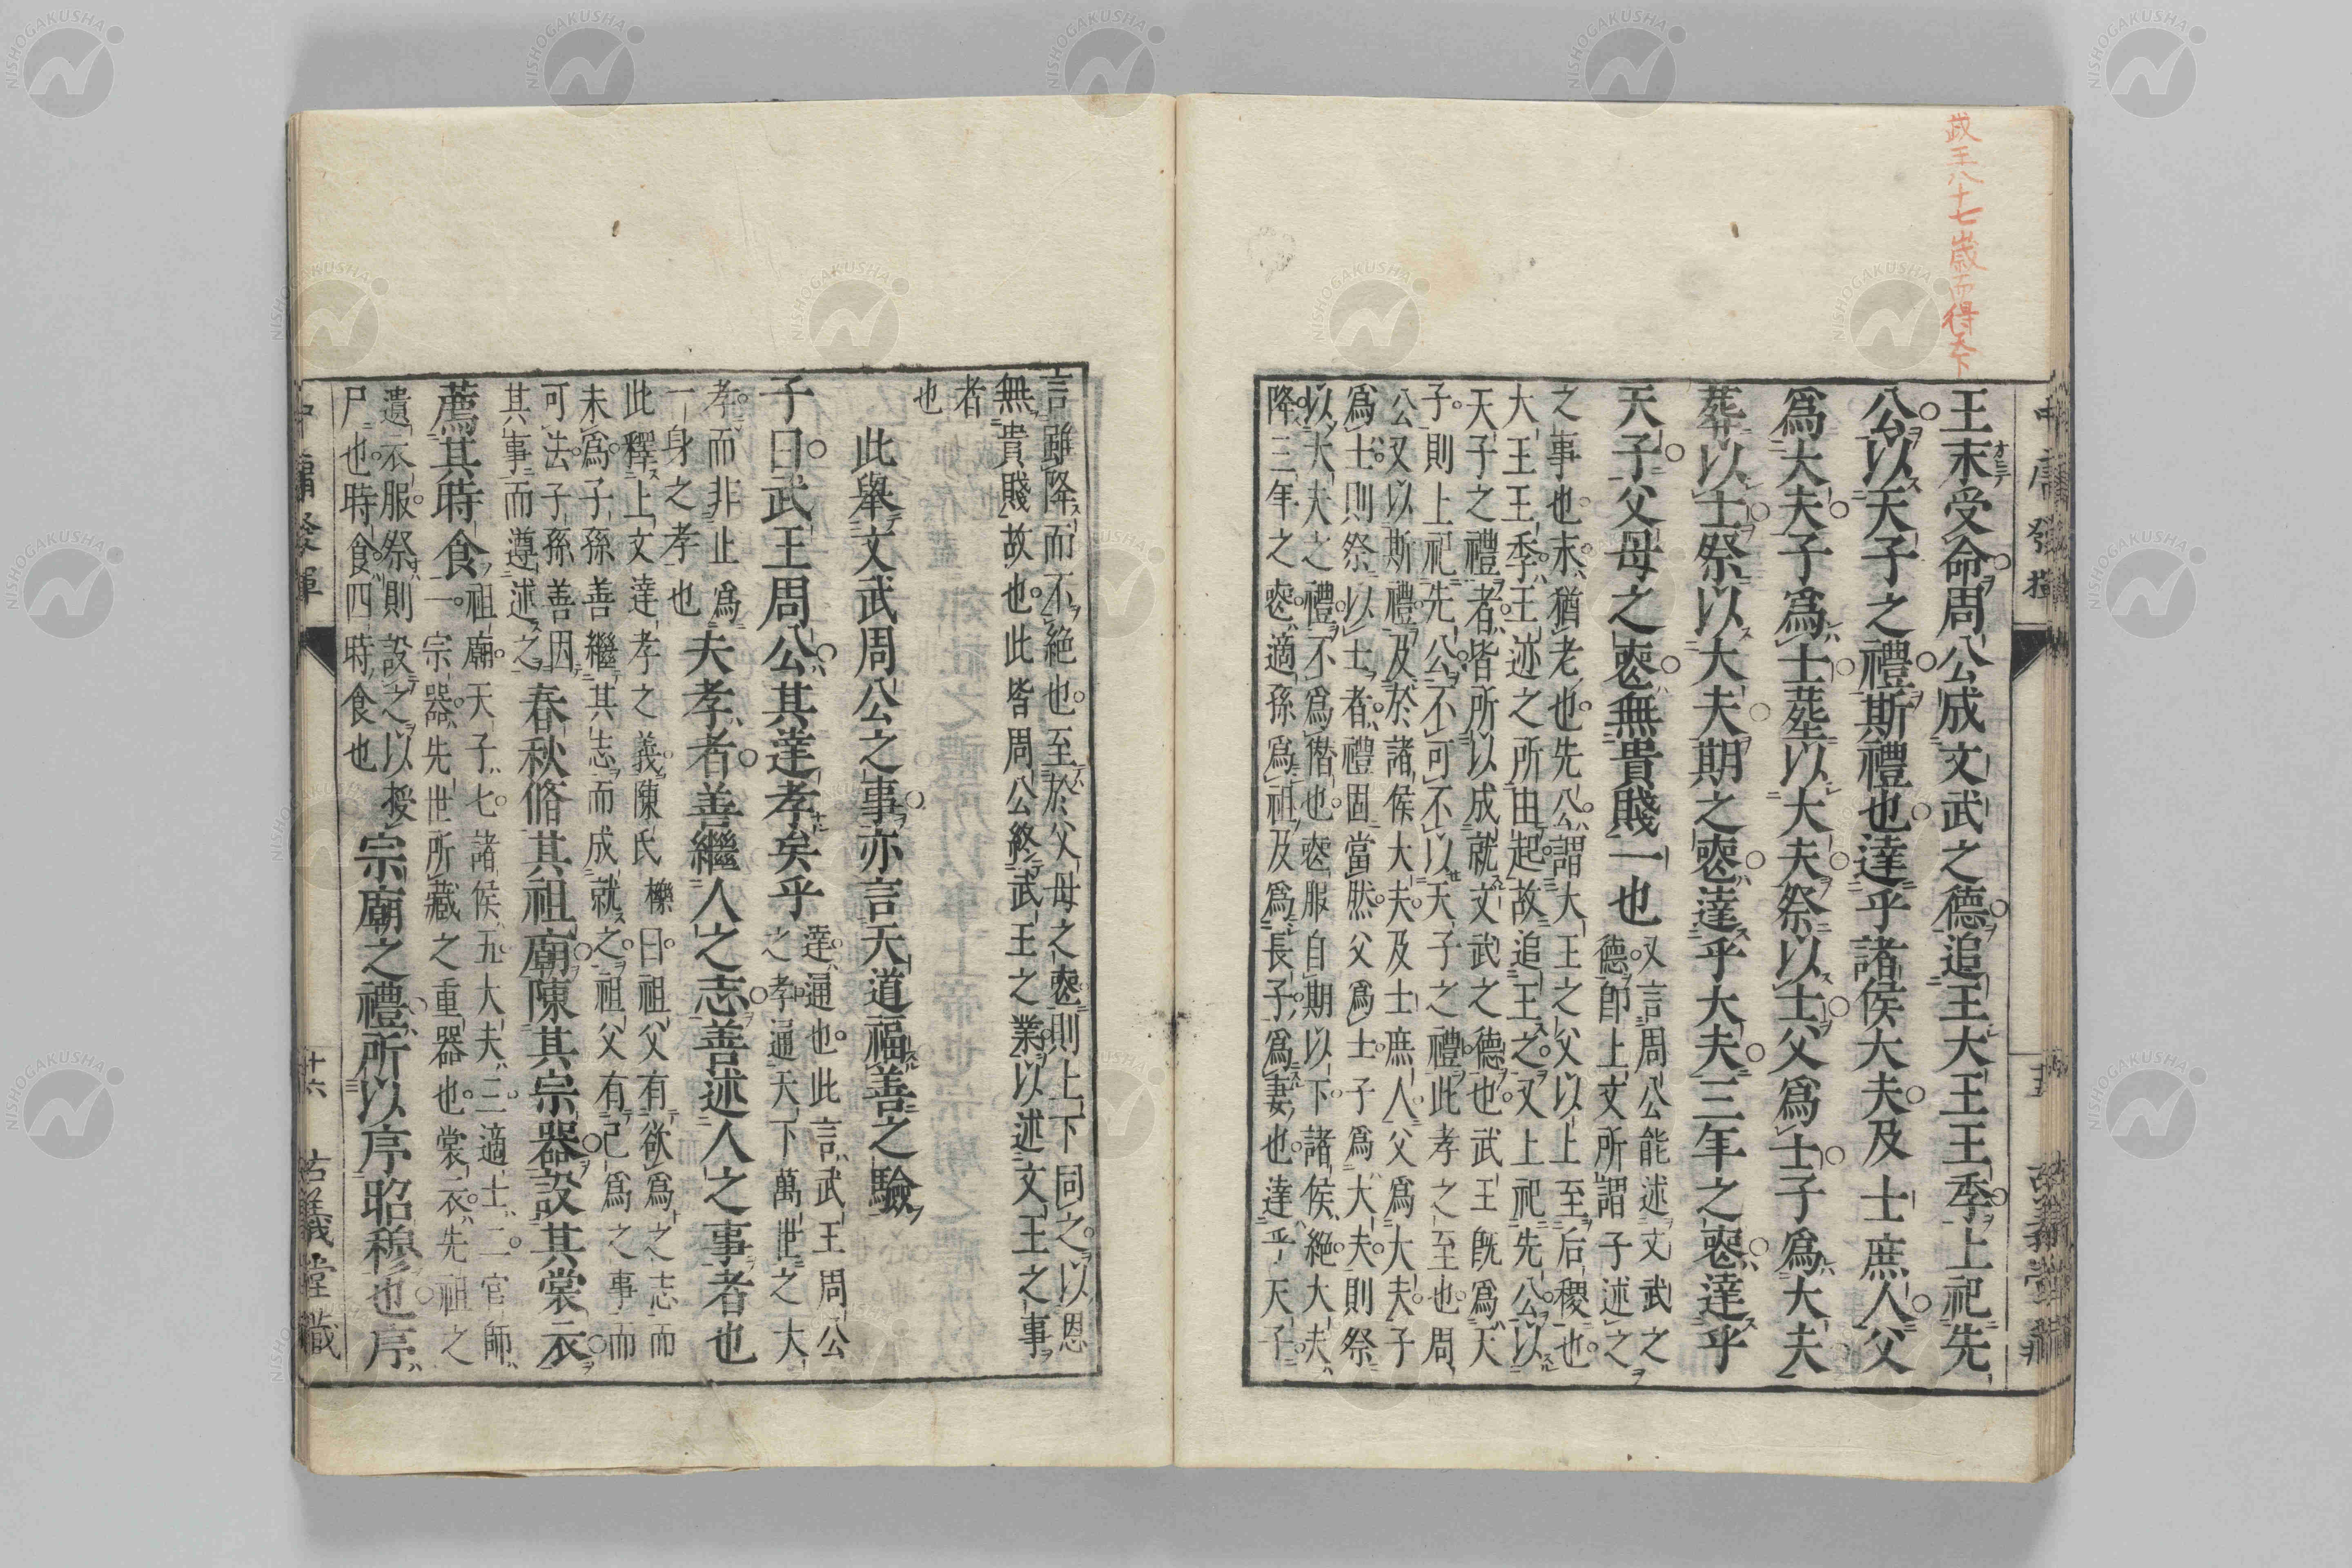 武王八十七歳而得天下
中庸發揮 十五 古義堂藏
王末受命周公成文武之德追王大王王季上祀先
公以天子之禮斯禮也達乎諸侯大夫及士庶人父
爲大夫子爲士葬以大夫祭以士父爲士子爲大夫
葬以士祭以大夫期之喪達乎大夫三年之喪達乎
天子父母之喪無貴賤一也
又言周公能述文武之
德即上文所謂子述之
之事也末猶老也先公謂大王之父以上至后稷也
大王王季王迹之所由起故追王之又上祀先公以
天子之禮者皆所以成就文武之德也武王既爲天
子則上祀先公不可不以天子之禮此孝之至也周
公又以斯禮及於諸侯大夫及士庶人父爲大夫子
爲士則祭以士者禮固當然父爲士子爲大夫則祭
以大夫之禮不爲僭也喪服自期以下諸侯絶大夫
降三年之喪適孫爲祖及爲長子爲妻也達乎天子
言雖降而不絶也至於父母之喪則上下同之以恩
無貴賤故也此皆周公終武王之業以述文王之事
者
也
此舉文武周公之事亦言天道福善之驗
子曰武王周公其達孝矣乎
達通也此言武王周公
之孝通天下萬世之大
孝而非止爲
一身之孝也
夫孝者善繼人之志善述人之事者也
此釋上文達孝之義陳氏櫟曰祖父有欲爲之志而
未爲子孫善繼其志而成就之祖父有已爲之事而
可法子孫善因
其事而遵述之
春秋脩其祖廟陳其宗器設其裳衣
薦其時食
祖廟天子七諸侯五大夫三適士二官師
一宗器先世所藏之重器也裳衣先祖之
遺衣服祭則設之以授
尸也時食四時食也
宗廟之禮所以序昭穆也序
中庸發揮 十六 古義堂藏